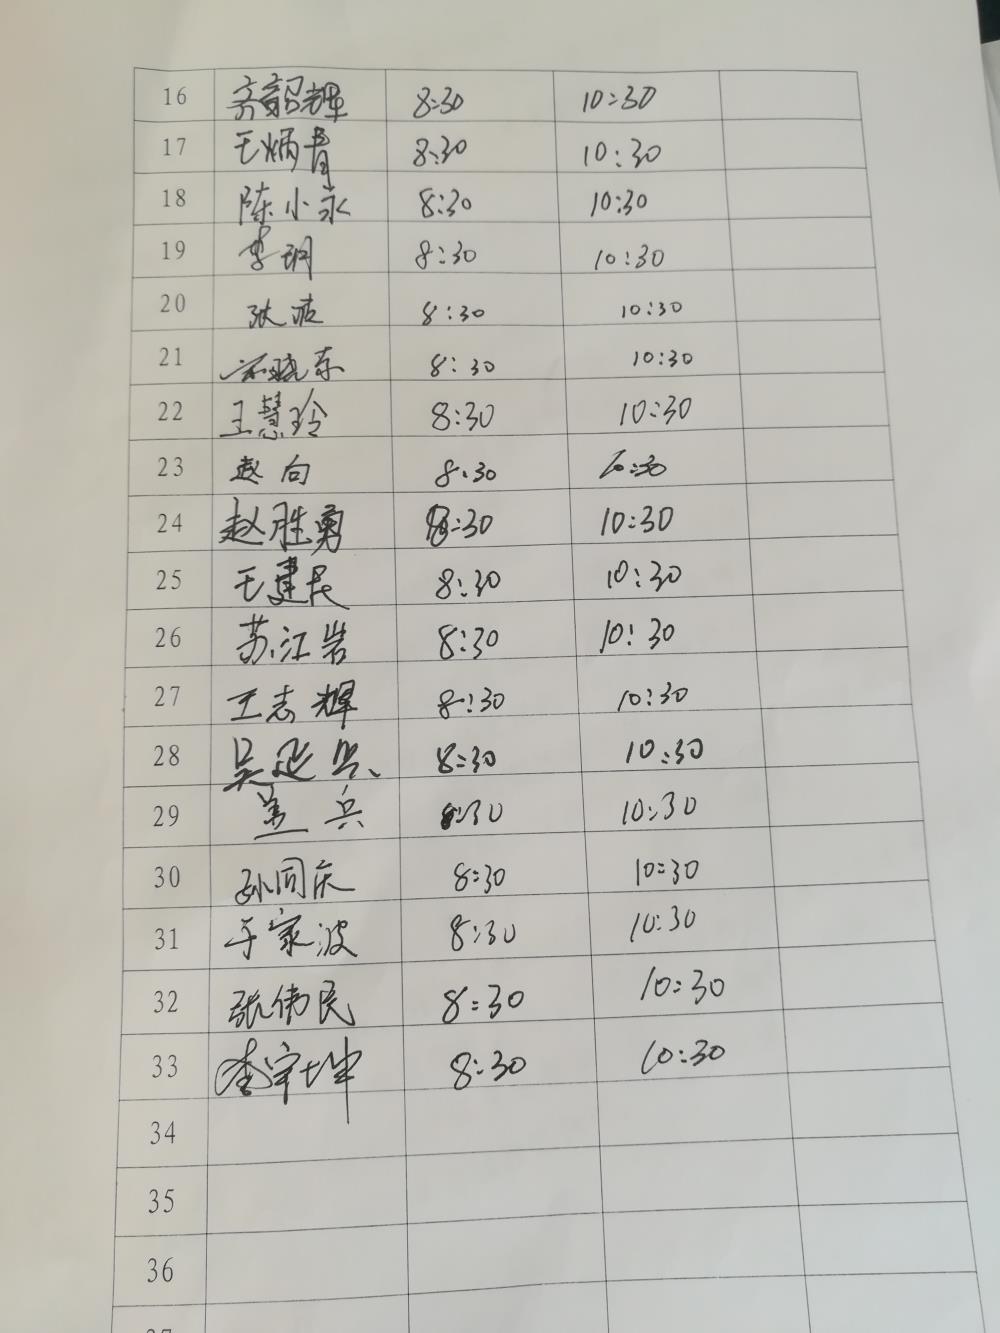 16 齐韶辉 8:30 10:30
17 王炳青 8:30 10:30
18 陈小永 8:30 10:30
19 李玥 8:30 10:30
20 张波 8:30 10:30
21 晓东 8:30 10:30
22 王慧玲 8:30 10:30
23 赵向 8:30 10:30
24 赵胜勇 8:30 10:30
25 王建民 8:30 10:30
26 苏江岩 8:30 10:30
27 王志辉 8:30 10:30
28 吴延兵 8:30 10:30
29 兵 8:30 10:30
30 孙同庆 8:30 10:30
31 于家波 8:30 10:30
32 张伟民 8:30 10:30
33 李宇坤 8:30 10:30
34
35
36